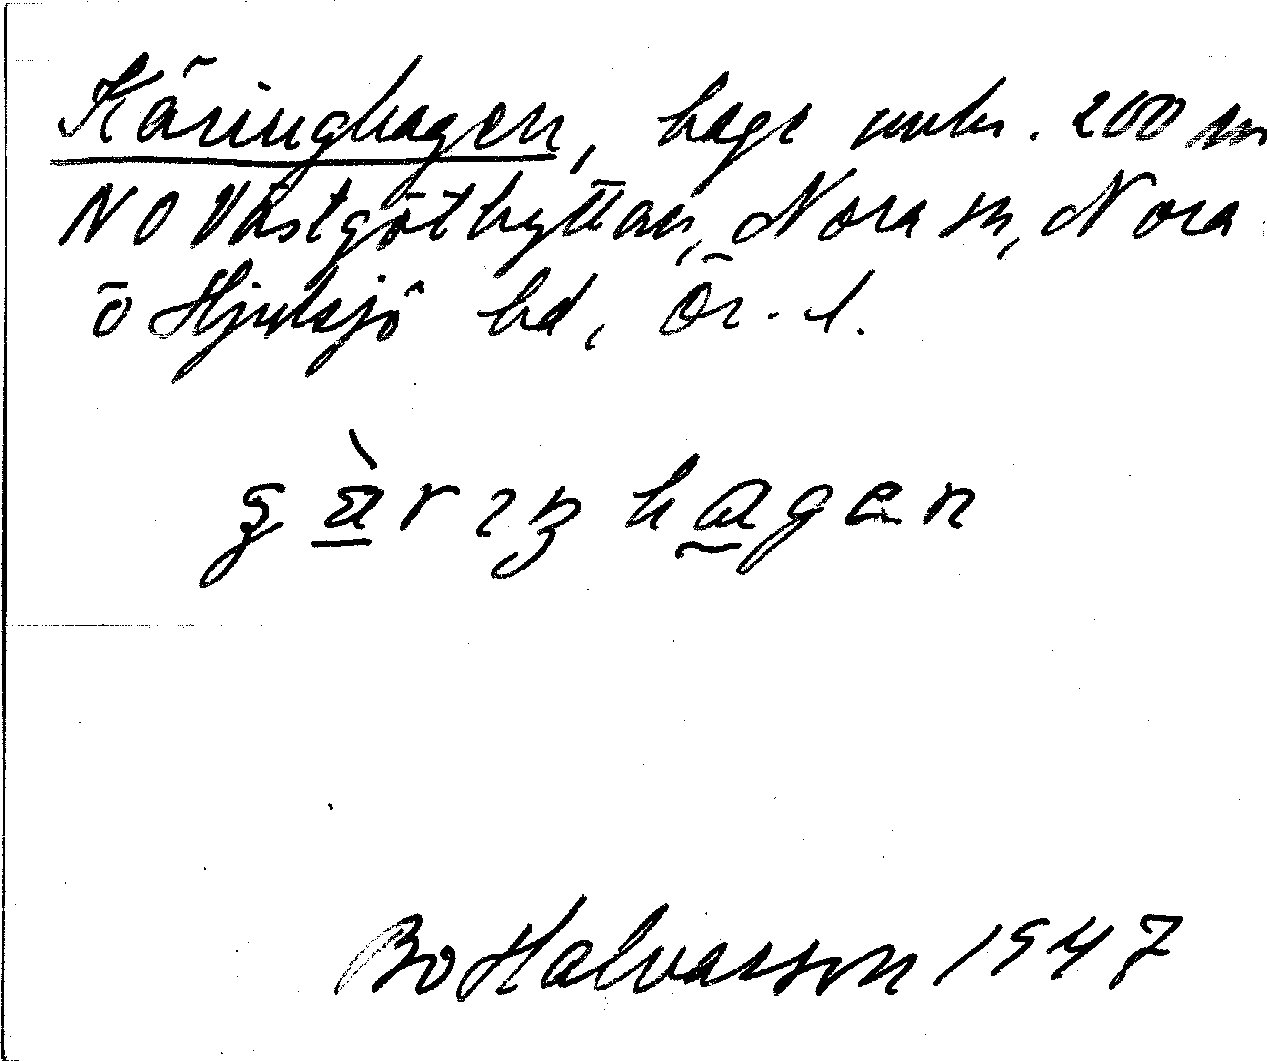 Käringhagen, hage unter. 200 m
NO Västgöthyttan, Nora sn, Nora
o Hjulsjö bd, Ör. l.
hagen
Bo Halvarsson 1947